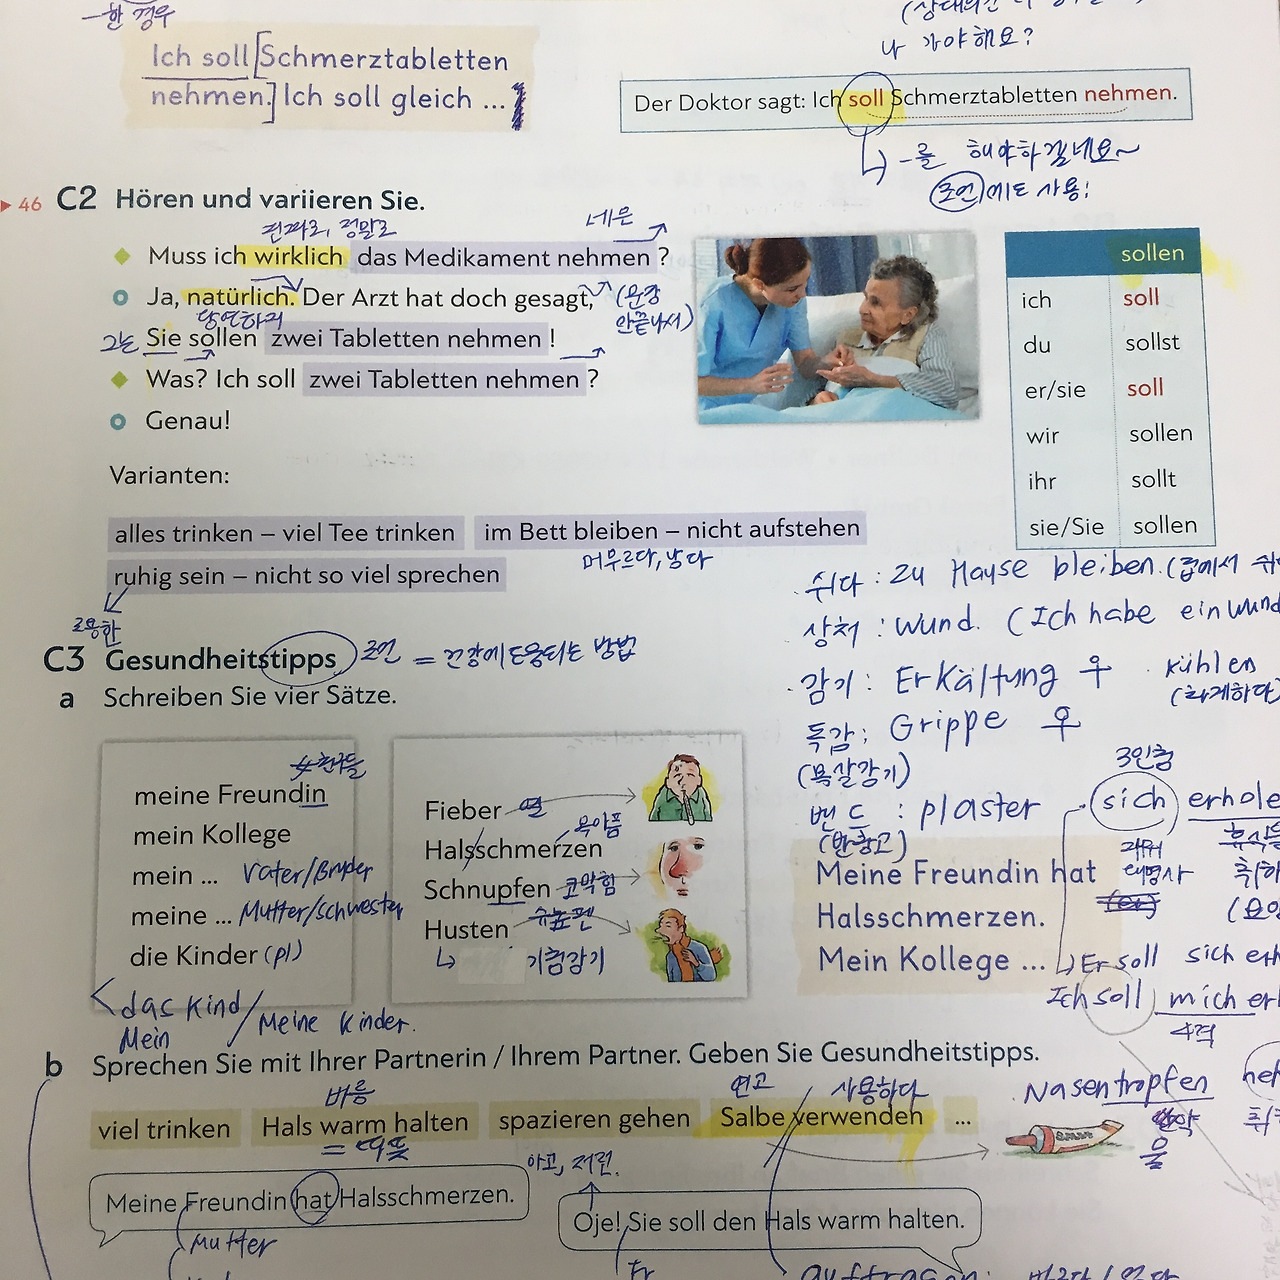 -한 경우
Ich soll [Schmerztabletten
nehmen.] Ich soll gleich ...
나 가야해요?
Der Doktor sagt: Ich soll Schmerztabletten nehmen.
-를 해야하겠네요~
조언에도 사용!
▸ 46 C2 Hören und variieren Sie.
진짜로, 정말로
네믄
Muss ich wirklich das Medikament nehmen?
Ja, natürlich. Der Arzt hat doch gesagt,
(문장
안끝나서)
당연하지
그는
Sie sollen zwei Tabletten nehmen!
Was? Ich soll zwei Tabletten nehmen?
Genau!
sollen
ich soll
du sollst
er/sie soll
wir sollen
ihr sollt
sie/Sie sollen
Varianten:
alles trinken – viel Tee trinken
im Bett bleiben – nicht aufstehen
머무르다, 남다
ruhig sein – nicht so viel sprechen
조용한
쉬다 : Zu Hause bleiben. (집에서
상처 : Wund. (Ich habe ein Wund
감기 : Erkältung 우
kühlen
(차게하다)
독감 : Grippe 우
(몸살감기)
밴드 : plaster
(반창고)
C3 Gesundheitstipps
조언 = 건강에 도움되는 방법
a Schreiben Sie vier Sätze.
meine Freundin
mein Kollege
mein ... Vater/Bruder
meine ... Mutter/schwester
die Kinder (pl)
das Kind / Meine Kinder.
Mein
Fieber 열
목아픔
Halsschmerzen
Schnupfen 코막힘
Husten
기침감기
3인칭
sich erhole
재귀
대명사
Meine Freundin hat
Halsschmerzen.
Mein Kollege ...
Er soll sich erh
Ich soll mich erh
4격
b Sprechen Sie mit Ihrer Partnerin / Ihrem Partner. Geben Sie Gesundheitstipps.
연고
사용하다
Nasentropfen
viel trinken
Hals warm halten
spazieren gehen
Salbe verwenden
...
= 따뜻
아고, 저런.
Meine Freundin hat Halsschmerzen.
Mutter
Oje! Sie soll den Hals warm halten.
Er
auftragen: